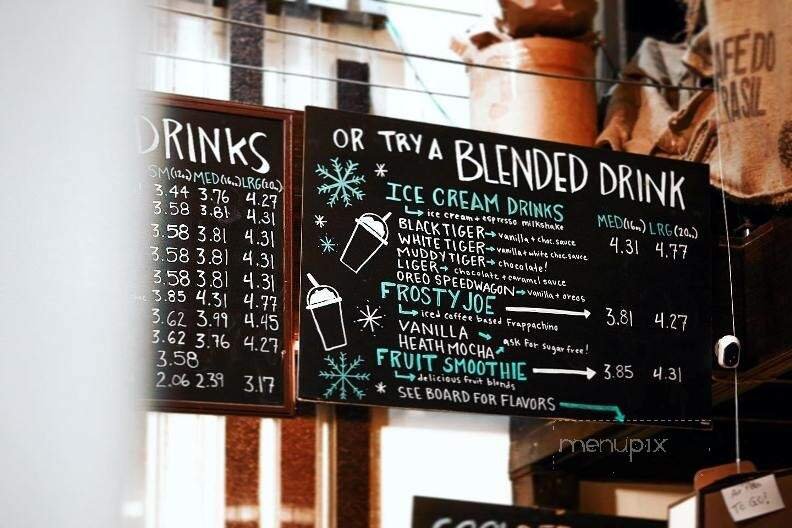 DRINKS
SM(12oz) MED(16oz) LRG(20oz)
3.44 3.76 4.27
3.58 3.81 4.31
3.58 3.81 4.31
3.58 3.81 4.31
3.58 3.81 4.31
3.85 4.31 4.77
3.62 3.99 4.45
3.62 3.76 4.27
3.58
2.06 2.39 3.17
OR TRY A BLENDED DRINK
ICE CREAM DRINKS MED(16oz) LRG(20oz)
ice cream + espresso milkshake 4.31 4.77
BLACK TIGER → vanilla + choc. sauce
WHITE TIGER → vanilla + white choc. sauce
MUDDY TIGER → chocolate!
LIGER → chocolate + caramel sauce
OREO SPEEDWAGON → vanilla + oreos
FROSTY JOE → 3.81 4.27
iced coffee based Frappachino
VANILLA
HEATH MOCHA ask for sugar free!
FRUIT SMOOTHIE → 3.85 4.31
delicious fruit blends
SEE BOARD FOR FLAVORS
CAFÉ DO
BRASIL
menupix
TO GO!